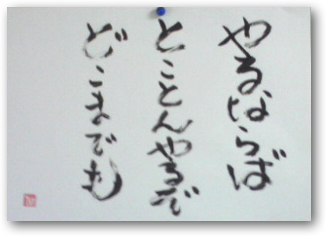 やるならば
とことんやるぞ
どこまでも